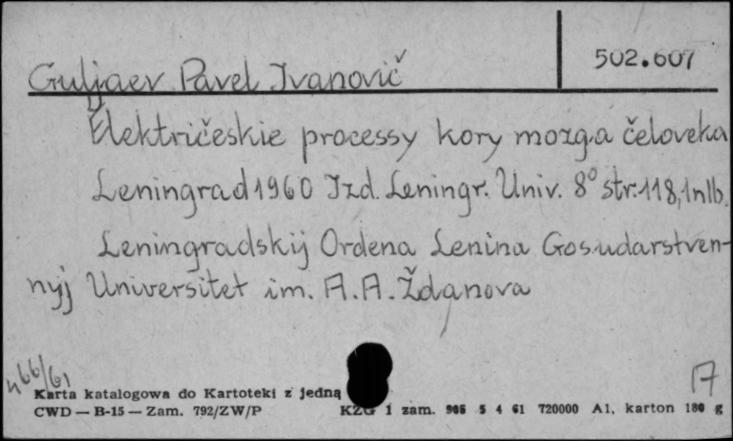 502.607
Guljaev Pavel Ivanovič
Električeskie processy kory mozga čeloveka
Leningrad 1960 Izd. Leningr. Univ. 8° str. 118, 1nlb.
Leningradskij Ordena Lenina Gosudarstven-
nyj Universitet im. A.A. Ždanova
466/61
17
Karta katalogowa do Kartoteki z jedną
CWD — B-15 — Zam. 792/ZW/P
KZG 1 zam. 905 5 4 61 720000 A1, karton 180 g